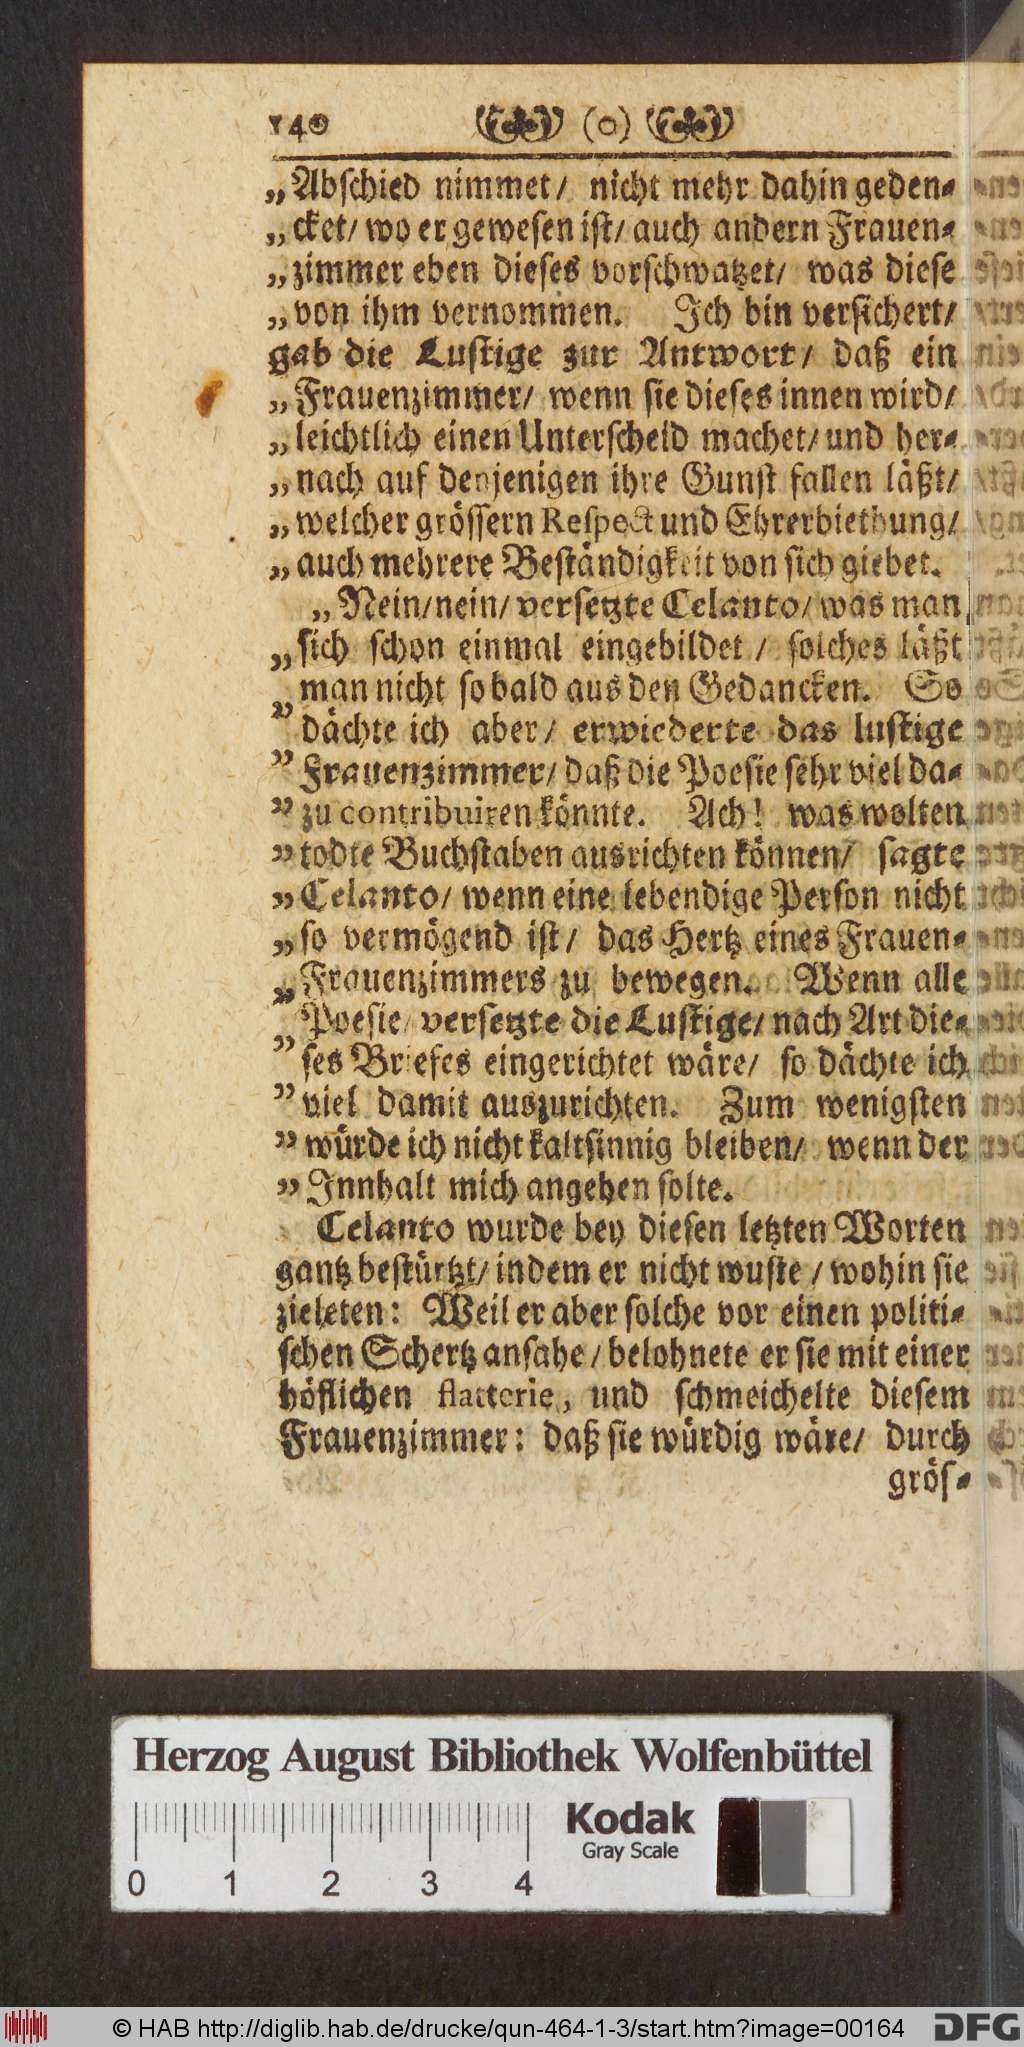 140 (o)
„Abschied nimmet/ nicht mehr dahin geden-
„cket/ wo er gewesen ist/ auch andern Frauen-
„zimmer eben dieses vorschwatzet/ was diese
„von ihm vernommen. Ich bin versichert/
gab die Lustige zur Antwort/ daß ein
„Frauenzimmer/ wenn sie dieses innen wird/
„leichtlich einen Unterscheid machet/ und her-
„nach auf denjenigen ihre Gunst fallen läßt/
„welcher grössern Respect und Ehrerbiethung/
„auch mehrere Beständigkeit von sich giebet.
„Nein/ nein/ versetzte Celanto/ was man
„sich schon einmal eingebildet / solches läßt
„man nicht so bald aus den Gedancken. So
” dächte ich aber/ erwiederte das lustige
” Frauenzimmer/ daß die Poesie sehr viel da-
” zu contribuiren könnte. Ach! was wolten
” todte Buchstaben ausrichten können/ sagte
” Celanto/ wenn eine lebendige Person nicht
„so vermögend ist/ das Hertz eines Frauen-
„Frauenzimmers zu bewegen. Wenn alle
„Poesie/ versetzte die Lustige/ nach Art die-
” ses Briefes eingerichtet wäre/ so dächte ich
” viel damit auszurichten. Zum wenigsten
” würde ich nicht kaltsinnig bleiben/ wenn der
” Innhalt mich angehen solte.
Celanto wurde bey diesen letzten Worten
gantz bestürtzt/ indem er nicht wuste / wohin sie
zieleten: Weil er aber solche vor einen politi-
schen Schertz ansahe / belohnete er sie mit einer
höflichen flatterie, und schmeichelte diesem
Frauenzimmer: daß sie würdig wäre/ durch
grös-
Herzog August Bibliothek Wolfenbüttel
Kodak
Gray Scale
0 1 2 3 4
© HAB http://diglib.hab.de/drucke/qun-464-1-3/start.htm?image=00164
DFG